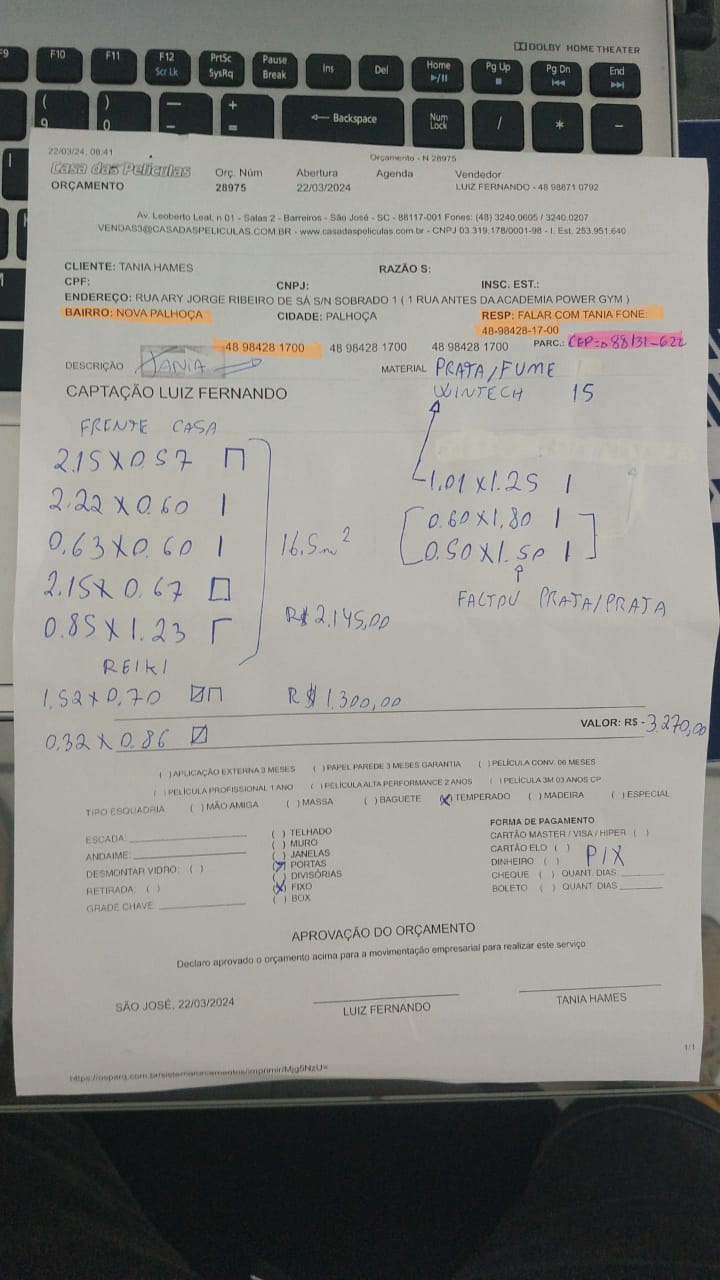 DOLBY HOME THEATER
F9 F10 F11 F12 PrtSc Pause Ins Del Home Pg Up Pg Dn End
Scr Lk SysRq Break
( ) — + Backspace Num / * –
9 0 – = Lock
22/03/24, 08:41
Orçamento - N 28975
Casa das Películas Orç. Núm Abertura Agenda Vendedor
ORÇAMENTO 28975 22/03/2024 LUIZ FERNANDO - 48 98871 0792
Av. Leoberto Leal, n 01 - Salas 2 - Barreiros - São José - SC - 88117-001 Fones: (48) 3240.0605 / 3240.0207
VENDAS3@CASADASPELICULAS.COM.BR - www.casadaspeliculas.com.br - CNPJ 03.319.178/0001-98 - I. Est. 253.951.640
CLIENTE: TANIA HAMES RAZÃO S:
CPF: CNPJ: INSC. EST.:
ENDEREÇO: RUA ARY JORGE RIBEIRO DE SÁ S/N SOBRADO 1 ( 1 RUA ANTES DA ACADEMIA POWER GYM )
BAIRRO: NOVA PALHOÇA CIDADE: PALHOÇA RESP: FALAR COM TANIA FONE:
48-98428-17-00
48 98428 1700 48 98428 1700 48 98428 1700 PARC.: CEP=88131-622
DESCRIÇÃO TANIA MATERIAL PRATA/FUME
CAPTAÇÃO LUIZ FERNANDO WINTECH 15
FRENTE CASA
2.15 X 0.57
2.22 X 0.60 1.01 X 1.25
0.63 X 0.60 16.5m² 0.60 X 1,80
2.15 X 0.67 0.50 X 1.50
0.85 X 1.23 R$ 2.145,00 FALTOU PRATA/PRATA
REIKI
1.52 X 0,70 R$ 1.300,00
0.32 X 0.86 VALOR: R$ - 3.270,00
( ) APLICAÇÃO EXTERNA 3 MESES ( ) PAPEL PAREDE 3 MESES GARANTIA ( ) PELÍCULA CONV. 06 MESES
( ) PELÍCULA PROFISSIONAL 1 ANO ( ) PELÍCULA ALTA PERFORMANCE 2 ANOS ( ) PELÍCULA 3M 03 ANOS CP
TIPO ESQUADRIA ( ) MÃO AMIGA ( ) MASSA ( ) BAGUETE (X) TEMPERADO ( ) MADEIRA ( ) ESPECIAL
ESCADA: ( ) TELHADO FORMA DE PAGAMENTO
ANDAIME: ( ) MURO CARTÃO MASTER / VISA / HIPER ( )
DESMONTAR VIDRO: ( ) ( ) JANELAS CARTÃO ELO ( ) PIX
RETIRADA: ( ) (X) PORTAS DINHEIRO ( )
GRADE CHAVE: ( ) DIVISÓRIAS CHEQUE ( ) QUANT. DIAS
(X) FIXO BOLETO ( ) QUANT. DIAS
( ) BOX
APROVAÇÃO DO ORÇAMENTO
Declaro aprovado o orçamento acima para a movimentação empresarial para realizar este serviço
SÃO JOSÉ, 22/03/2024 LUIZ FERNANDO TANIA HAMES
1/1